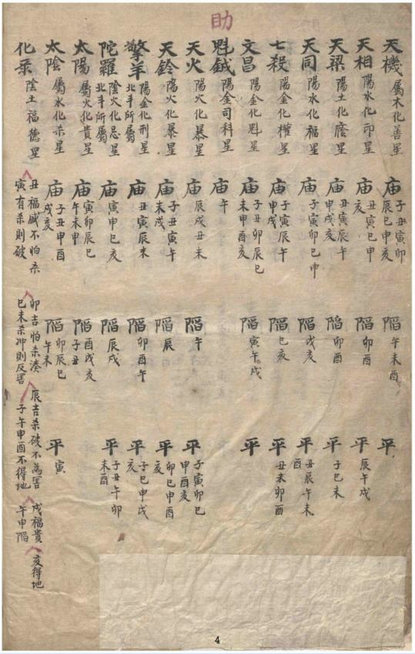 助
天機 屬木化善星 庙 陷 午未酉 平
天相 陽水化印星 庙 丑寅巳申亥 陷 卯酉 平 辰午戌
天梁 陽土化蔭星 庙 丑寅辰午申戌 陷 卯酉 平 子巳未
天同 陽水化福星 庙 子寅卯巳申 陷 戌亥 平 丑辰午未酉
七殺 陽金化權星 庙 子寅辰午申戌 陷 巳亥 平 丑未卯酉
文昌 陽金化魁星 庙 子丑卯辰巳未申酉亥 陷 寅午戌 平
魁鉞 陽金司科星 庙 午
天火 陽火化暴星 庙 辰戌丑未 陷 午 平 子寅卯巳申酉亥
天鈴 陽火化暴星 庙 子丑寅午未戌 陷 辰 平 卯巳申酉亥
擎羊 陽金化刑星 北斗所屬 庙 丑寅辰未 陷 卯酉午 平 子巳申戌亥
陀羅 陰火化忌星 北斗所屬 庙 寅申巳亥 陷 辰戌 平 子丑午卯未酉
太陽 屬火化貴星 庙 寅卯辰巳午未申 陷 酉戌亥子丑 平
太陰 屬水化杀星 庙 子丑申酉戌亥 陷 卯辰巳午未 平 寅
化杀 陰土福德星 丑福威不怕杀 寅有杀則破 卯吉怕杀湊 巳未杀冲則反害 辰吉杀破不為害 子午申酉不得地 戌福貴 午申陷 亥得地
4